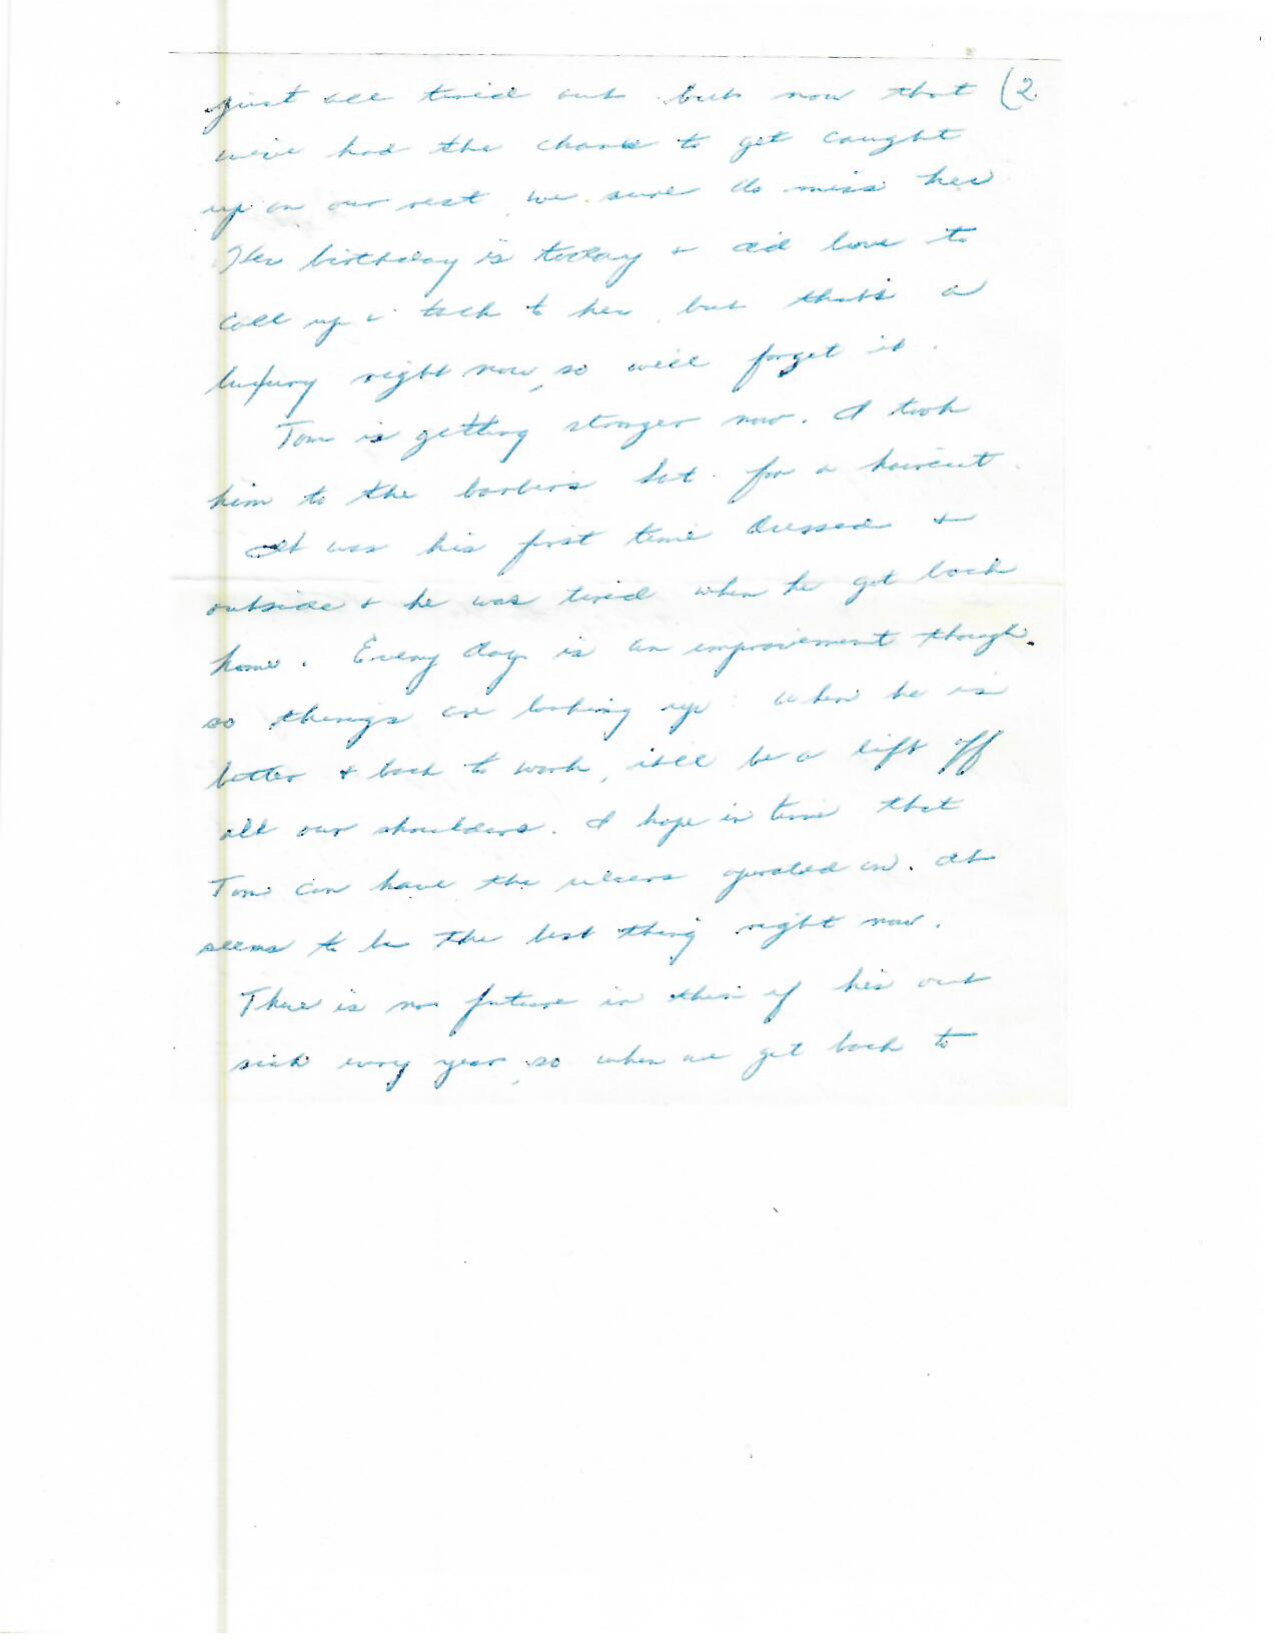 just all tired out but now that (2
we've had the chance to get caught
up on our rest we sure do miss her
Her birthday is today + I'd love to
call up & talk to her but that's a
luxury right now, so we'll forget it.
Tom is getting stronger now. I took
him to the barbers Sat. for a haircut.
It was his first time dressed +
outside + he was tired when he got back
home. Every day is an improvement though.
so things are looking up. When he is
better + back to work, it'll be a lift off
all our shoulders. I hope in time that
Tom can have the ulcers operated on. It
seems to be the best thing right now.
There is no future in this if he's out
sick every year, so when we get back to